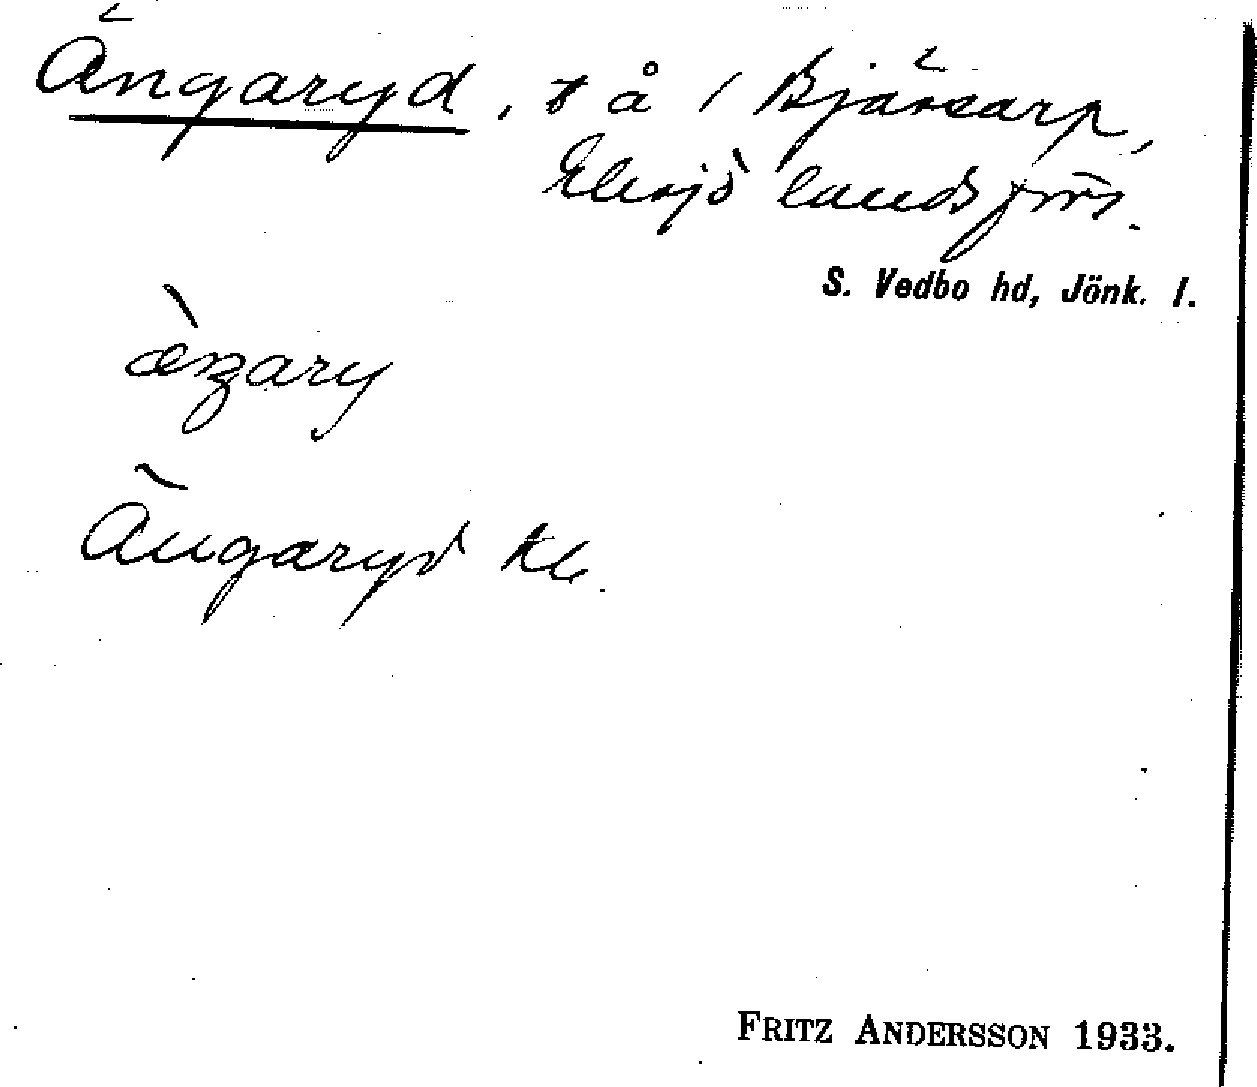 Ängaryd, t å / Bjärsarp,
Eksjö landsförs.
S. Vedbo hd, Jönk. l.
ængary
Ängaryd
FRITZ ANDERSSON 1933.